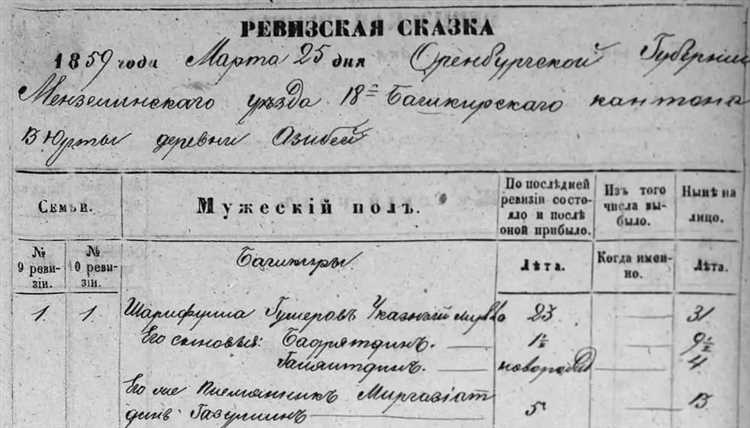 РЕВИЗСКАЯ СКАЗКА
1859 года Марта 25 дня Оренбургской Губернии
Мензелинскаго уѣзда 18= Башкирскаго кантона
13 Юрты деревни Азибей
Семьи.
Мужескій полъ.
По послѣдней ревизіи состояло и послѣ оной прибыло.
Изъ того числа выбыло.
Нынѣ на лицо.
№ 9 ревизіи.
№ 10 ревизіи.
Башкиры
Лѣта.
Когда именно.
Лѣта.
1. 1. Шарифулла Гумеровъ Указный мулла 23 31
Его сыновья: Бадрятдинъ. 1½ 9½
Галяитдинъ. новорожд 4
Его же племянникъ Миргазіат
динъ 5 13